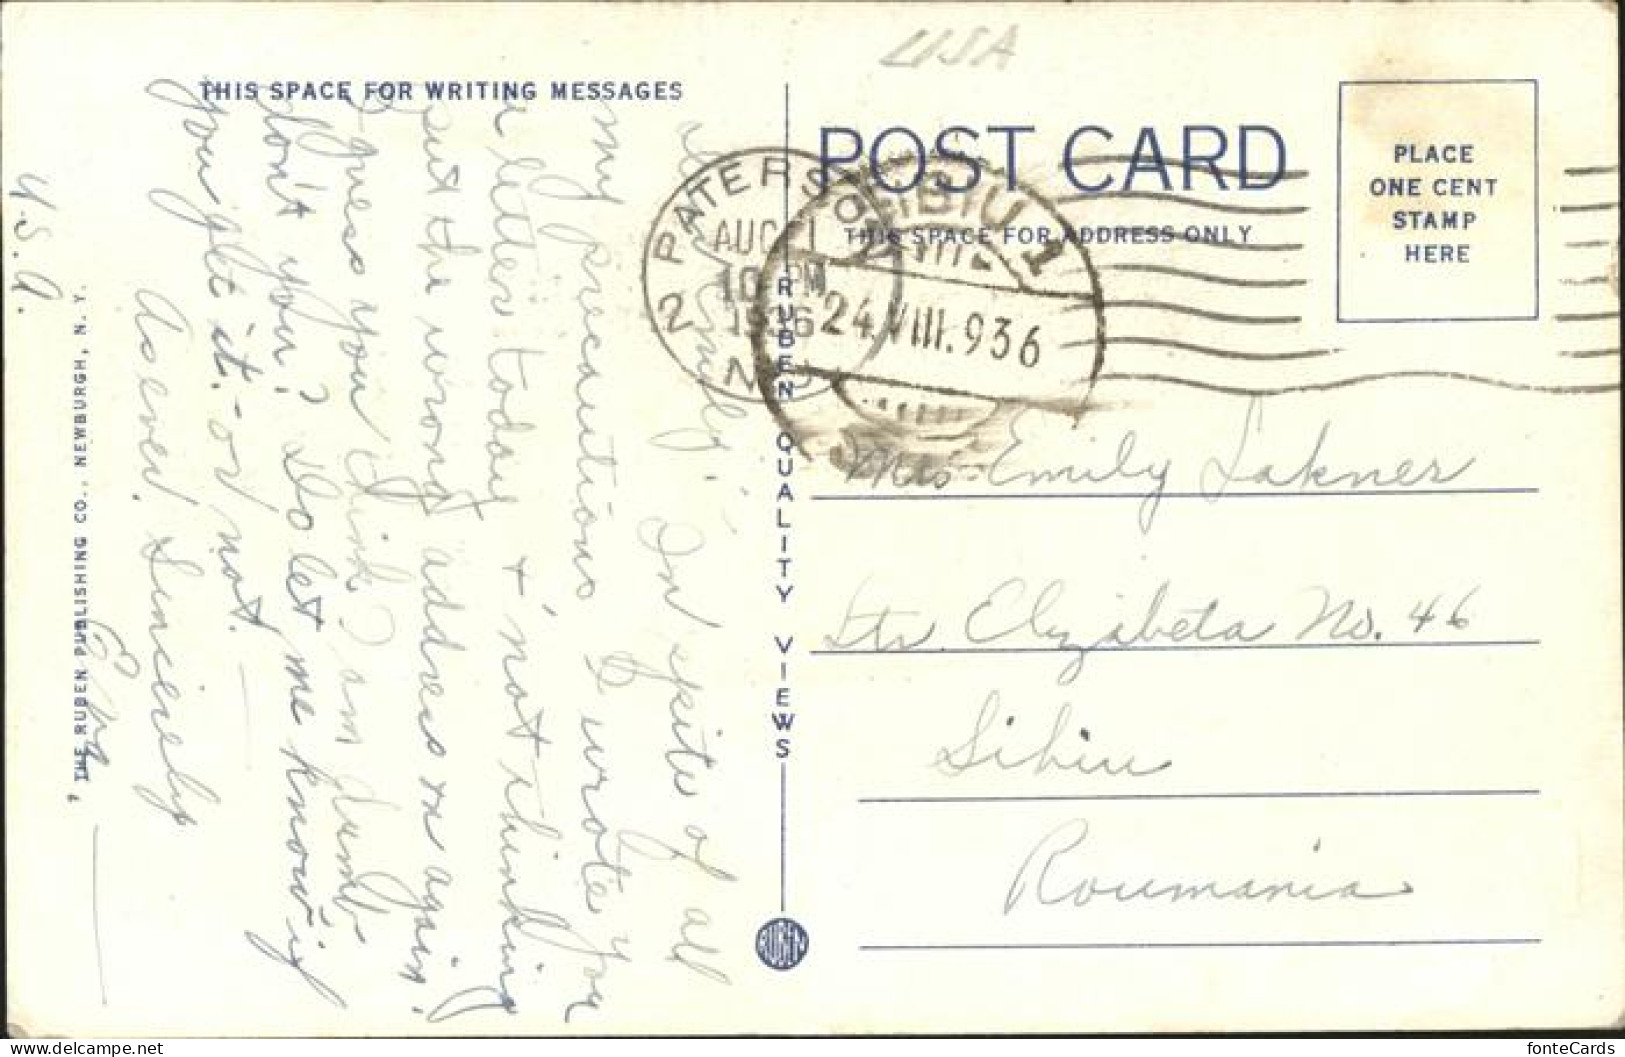 USA
THIS SPACE FOR WRITING MESSAGES
POST CARD
THIS SPACE FOR ADDRESS ONLY
PLACE
ONE CENT
STAMP
HERE
2 PATERSON
AUG 11
10 PM
1936
N.J.
SIBIU 1
24.VIII.936
Dear Emily:
In spite of all
my precautions I wrote you
a letter today + not thinking
put the wrong address on again.
I guess you think I am dumb
don't you? Do let me know if
you get it - or not.
As ever Sincerely
Erna
U.S.A.
Mrs Emily Lakner
Str. Elizabeta No. 46
Sibiu
Roumania
RUBEN QUALITY VIEWS
RUBEN
THE RUBEN PUBLISHING CO., NEWBURGH, N. Y.
fonteCards